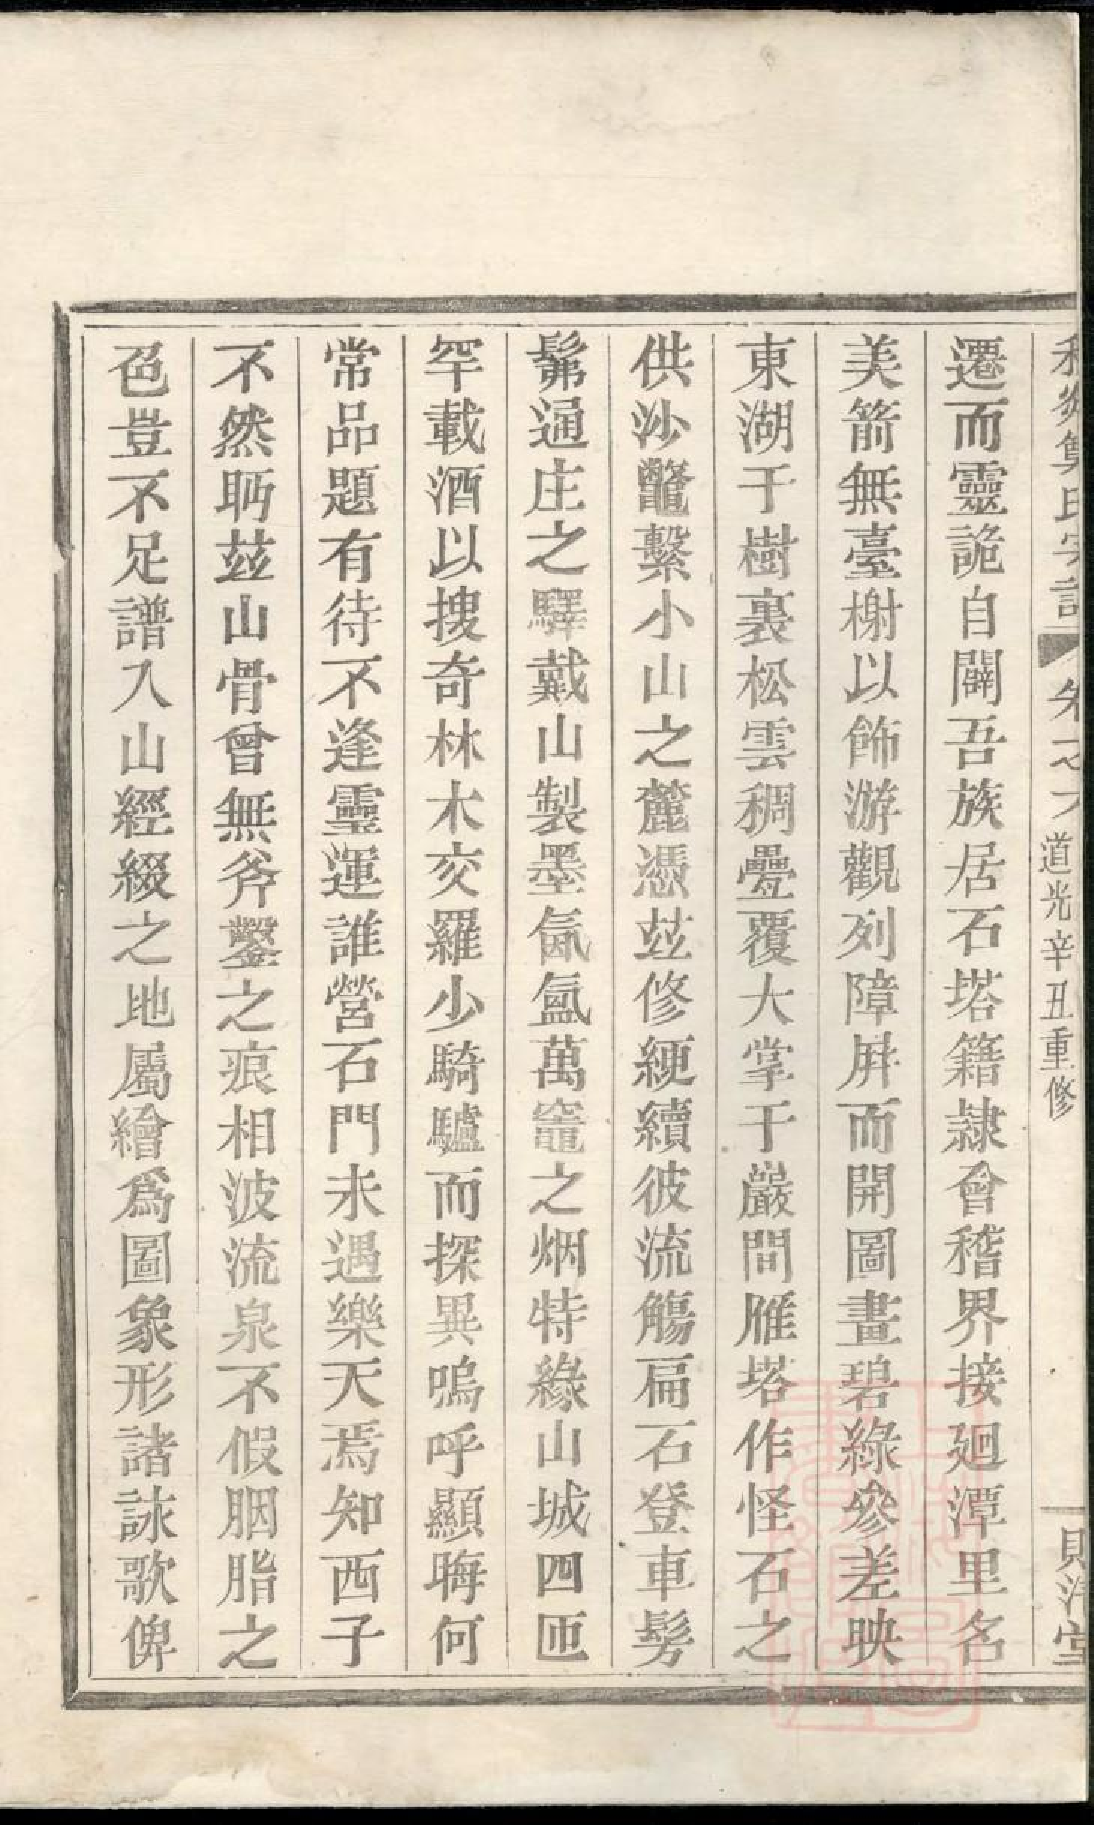 氏宗譜 卷之 道光辛丑重修
遷而靈詭自闢吾族居石塔籍隷會稽界接廻潭里名
美箭無臺榭以飾游觀列障屛而開圖畫碧綠參差映
東湖于樹裏松雲稠疊覆大掌于巖間雁塔作怪石之
供沙鼈繫小山之麓憑玆修綆續彼流觴扁石登車髣
髴通庄之驛戴山製墨氤氳萬竈之烟特緣山城四匝
罕載酒以搜奇林木交羅少騎驢而探異嗚呼顯晦何
常品題有待不逢靈運誰營石門未遇樂天焉知西子
不然眄玆山骨曾無斧鑿之痕相波流泉不假胭脂之
色豈不足譜入山經綴之地屬繪爲圖象形諸詠歌俾